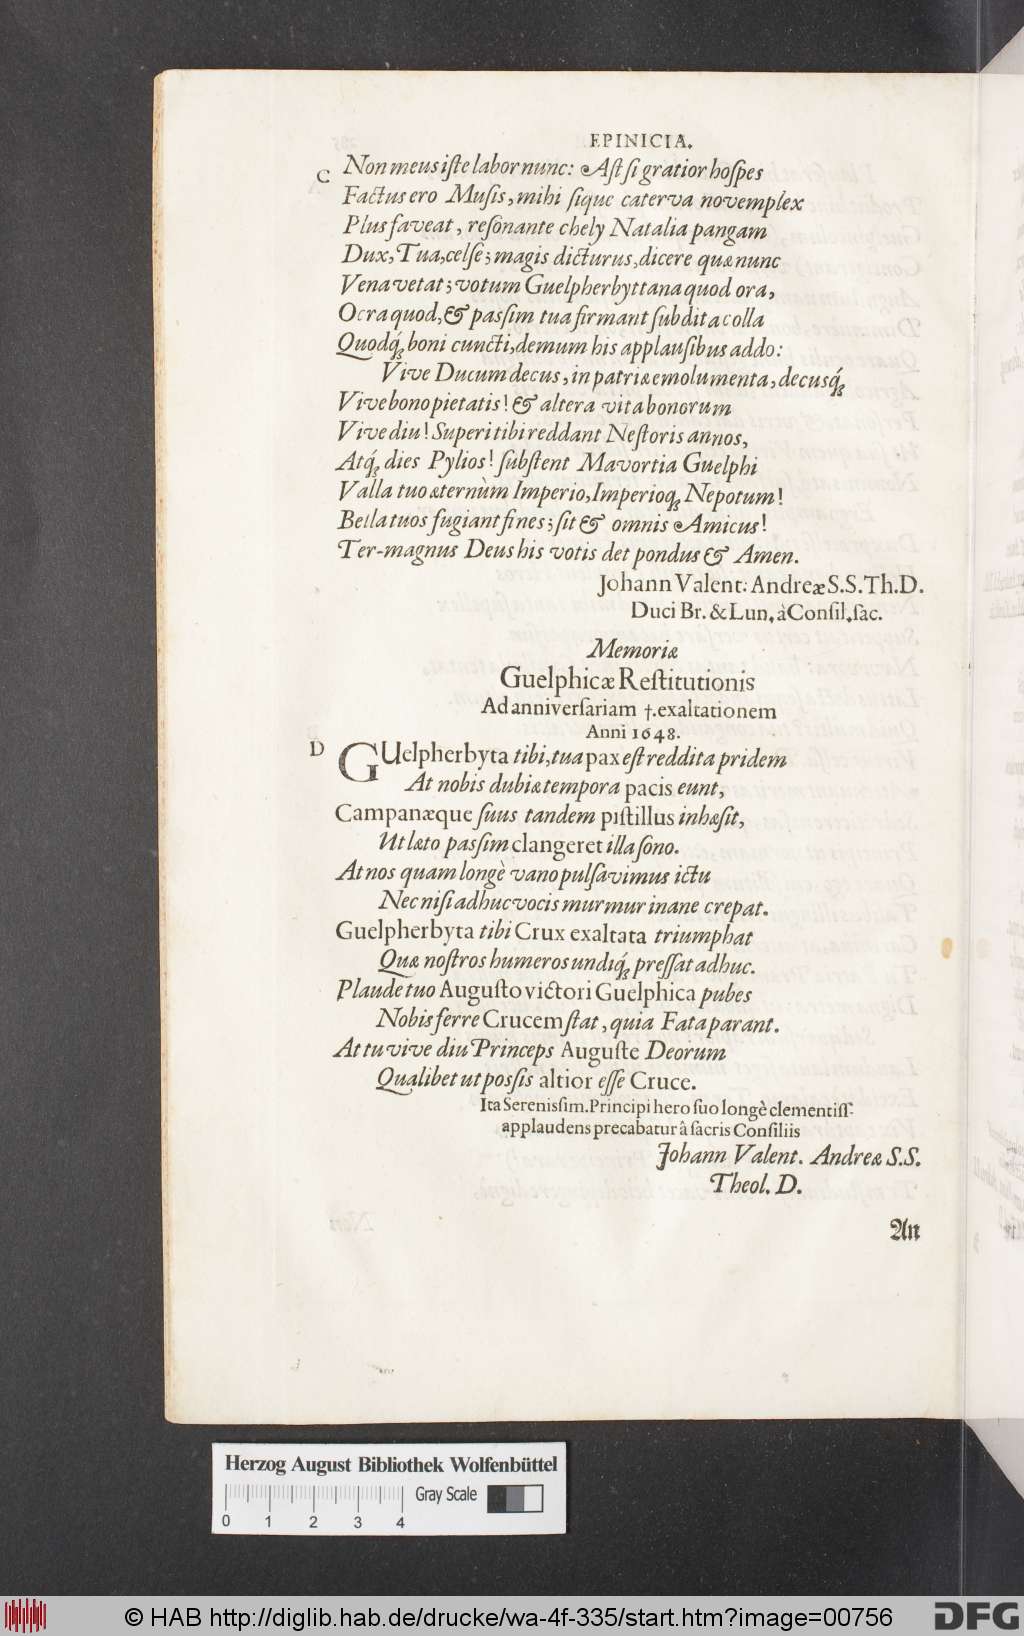 EPINICIA.
C
Non meus iſte labor nunc: Aſt ſi gratior hoſpes
Factus ero Muſis, mihi ſique caterva novemplex
Plus faveat, reſonante chely Natalia pangam
Dux, Tua, celſe; magis dicturus, dicere quæ nunc
Vena vetat; votum Guelpherbyttana quod ora,
Ocra quod, & paſsim tua firmant ſubdita colla
Quodq́; boni cuncti, demum his applauſibus addo:
Vive Ducum decus, in patriæ emolumenta, decusq́;
Vive bono pietatis! & altera vita bonorum
Vive diu! Superi tibi reddant Neſtoris annos,
Atq́; dies Pylios! ſubſtent Mavortia Guelphi
Valla tuo æternùm Imperio, Imperioq; Nepotum!
Bella tuos fugiant fines; ſit & omnis Amicus!
Ter-magnus Deus his votis det pondus & Amen.
Johann Valent: Andreæ S.S.Th.D.
Duci Br. & Lun. à Conſil. ſac.
Memoriæ
Guelphicæ Reſtitutionis
Ad anniverſariam †. exaltationem
Anni 1648.
D
GUelpherbyta tibi, tua pax eſt reddita pridem
At nobis dubiæ tempora pacis eunt,
Campanæque ſuus tandem piſtillus inhæſit,
Ut læto paſsim clangeret illa ſono.
At nos quam longè vano pulſavimus ictu
Nec niſi adhuc vocis murmur inane crepat.
Guelpherbyta tibi Crux exaltata triumphat
Quæ noſtros humeros undiq́; preſſat adhuc.
Plaude tuo Auguſto victori Guelphica pubes
Nobis ferre Crucem ſtat, quia Fata parant.
At tu vive diu Princeps Auguſte Deorum
Qualibet ut poſsis altior eſſe Cruce.
Ita Sereniſsim. Principi hero ſuo longè clementiſſ:
applaudens precabatur â ſacris Conſiliis
Johann Valent. Andreæ S.S.
Theol. D.
An
Herzog August Bibliothek Wolfenbüttel
Gray Scale
0 1 2 3 4
© HAB http://diglib.hab.de/drucke/wa-4f-335/start.htm?image=00756
DFG